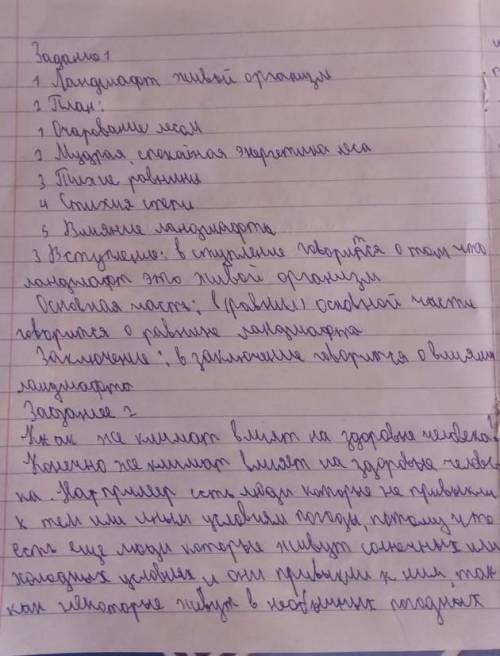 Задание 1
1 Ландшафт живой организм
2 План:
1 Очарование лесам
2 Мудрая, спокойная энергетика леса
3 Тихие равнины
4 Стихия степи
5 Влияние ландшафта
3 Вступление: в ступление говорится о том что
ландшафт это живой организм
Основная часть: в (равнин) основной части
говорится о равнине ландшафта
Заключение: в заключение говорится о влиянии
ландшафта
Задание 2
Как же климат влият на здоровье человека.
Конечно же климат влияет на здоровье челове-
ка. Например есть люди которые не привыкли
к тем или иным условиям погоды, потому что
есть еще люди которые живут солнечных или
холодных условиях и они привыкли к ним, так
как некоторые живут в необычных погодных